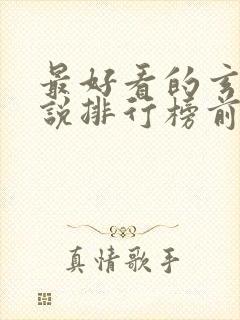 最好看的玄
说排行榜前
真情歌手